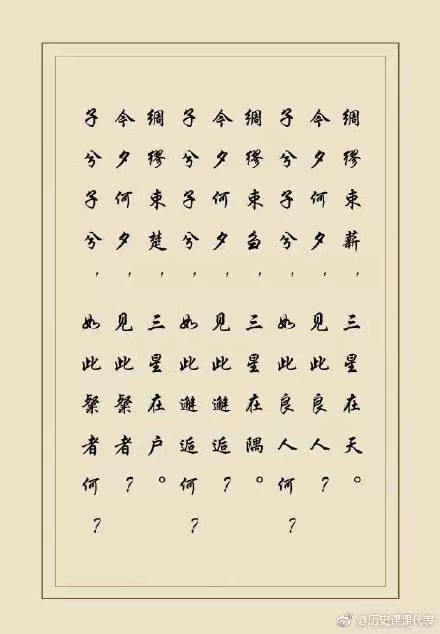 綢繆束薪，三星在天。
今夕何夕，見此良人？
子兮子兮，如此良人何？
綢繆束芻，三星在隅。
今夕何夕，見此邂逅？
子兮子兮，如此邂逅何？
綢繆束楚，三星在户。
今夕何夕，見此粲者？
子兮子兮，如此粲者何？
@历史课课代表